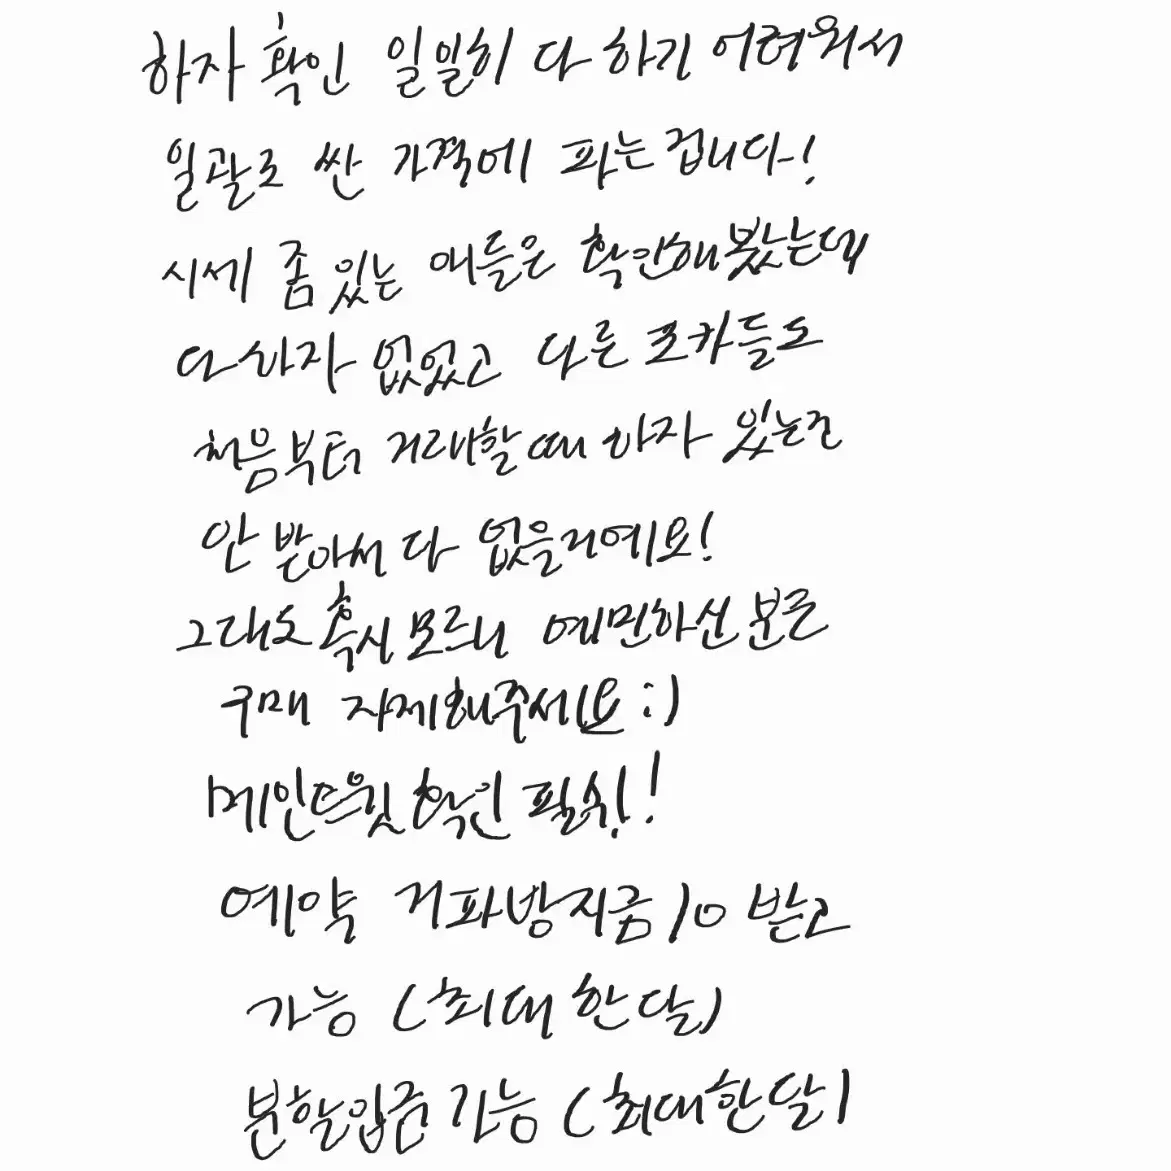 하자 확인 일일히 다 하기 어려워서
일괄로 싼 가격에 파는 겁니다!
시세 좀 있는 애들은 확인해봤는데
다 하자 없었고 다른 포카들도
처음부터 거래할때 하자 있는건
안 받아서 다 없을거에요!
그래도 혹시 모르니 예민하신 분은
구매 자제해주세요 :)
메인트윗 확인 필수!!
예약 거파방지금 10 받고
가능 (최대 한달)
분할입금 가능 (최대한달)